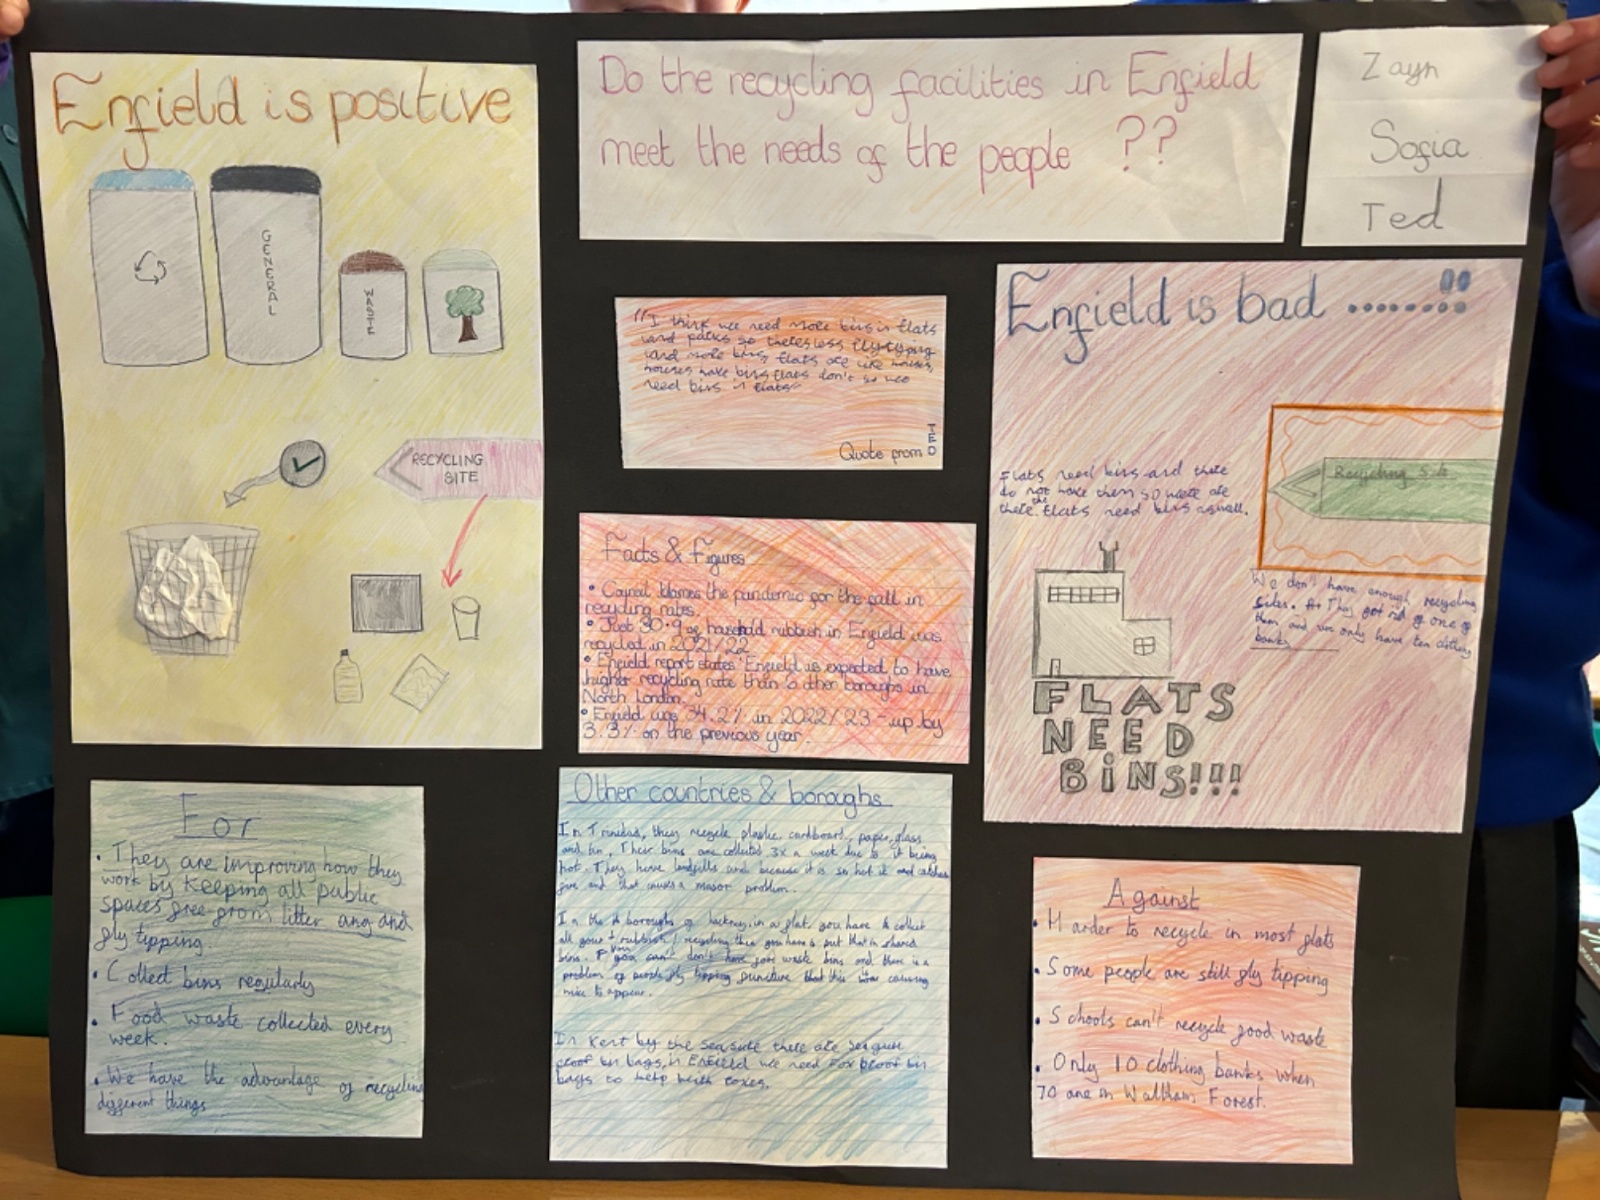 Enfield is positive
GENERAL
WASTE
RECYCLING
SITE
Do the recycling facilities in Enfield
meet the needs of the people ??
Zayn
Sofia
Ted
"I think we need more bins in flats
and parks so theres less flytipping
and more bins, flats are like houses,
houses have bins flats don't so we
need bins in flats"
Quote from TED
Facts & Figures
• Council blames the pandemic for the fall in
recycling rates.
• Just 30.9 of household rubbish in Enfield was
recycled in 2021/22
• Enfield report states 'Enfield is expected to have
higher recycling rate than 6 other boroughs in
North London.
• Enfield was 34.2% in 2022/23 - up by
3.3% on the previous year.
Enfield is bad ........!!
Flats need bins and there
do not have them so waste are
there. the flats need bins aswall.
Recycling Site
We don't have enough recycling
sites. They got rid of one of
them and we only have ten clothing
banks
FLATS
NEED
BINS!!!
For
• They are improving how they
work by keeping all public
spaces free from litter ang and
fly tipping.
• Collect bins regularly
• Food waste collected every
week.
• We have the advantage of recycling
different things
Other countries & boroughs
In Trinidad, they recycle plastic, cardboard, paper, glass
and tin. Their bins are collected 3x a week due to it being
hot. They have landfills and because it is so hot it catches
fire and that causes a major problem.
In the boroughs of hackney, in a flat you have to collect
all your rubbish / recycling then you have to put that in shared
bins. you can't don't have food waste bins and there is a
problem of people fly tipping puncture that this causing
mice to appear.
In Kent by the seaside there are seagull
proof bin bags, in Enfield we need Fox proof bin
bags to help with foxes.
Against
• Harder to recycle in most flats
• Some people are still fly tipping
• Schools can't recycle food waste
• Only 10 clothing banks when
70 are in Waltham Forest.